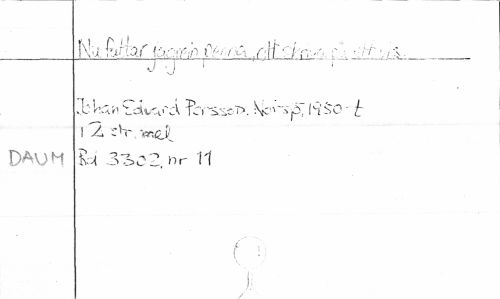 Nu fattar jag min penna, att skriva på ett vis
Johan Edvard Persson. 1950-t
12 str. mel
DAUM Bd 3302, nr 11